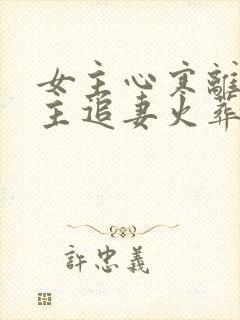 女主心寒離
主追妻火葬
許忠義